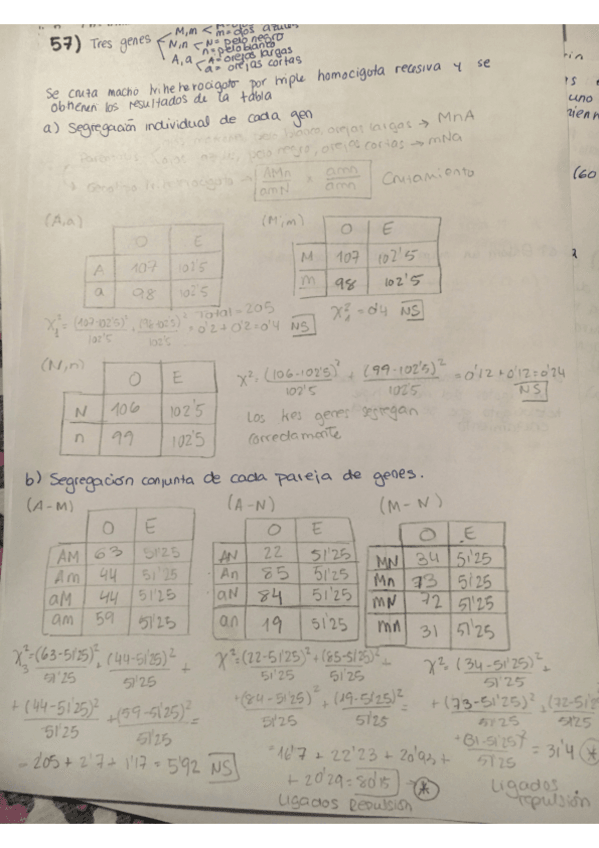 57) Tres genes
M,m < m = dos
N,n < N = pelo negro
n = pelo blanco
A,a < A = orejas largas
a = orejas cortas
Se cruza macho triheterocigoto por triple homocigota recesiva y se
obtienen los resultados de la tabla
a) Segregación individual de cada gen
orejas largas → MnA
pelo negro, orejas cortas → mNa
AMn/amN × amn/amn Cruzamiento
(A,a)
(M,m)
O E
O E
A 107 102'5
M 107 102'5
a 98 102'5
m 98 102'5
Total = 205
= 0'2 + 0'2 = 0'4 NS
= 0'4 NS
(N,n)
O E
N 106 102'5
n 99 102'5
χ² = (106-102'5)²/102'5 + (99-102'5)²/102'5 = 0'12 + 0'12 = 0'24
NS
Los tres genes segregan
correctamente
b) Segregación conjunta de cada pareja de genes.
(A-M) (A-N) (M-N)
O E
O E
O E
AM 63 51'25
AN 22 51'25
MN 34 51'25
Am 44 51'25
An 85 51'25
Mn 73 51'25
aM 44 51'25
aN 84 51'25
mN 72 51'25
am 59 51'25
an 19 51'25
mn 31 51'25
χ²₃ = (63-51'25)²/51'25 + (44-51'25)²/51'25 +
+ (44-51'25)²/51'25 + (59-51'25)²/51'25 =
+ 2'7 + 1'17 = 5'92 NS
χ² = (22-51'25)²/51'25 + (85-51'25)²/51'25 +
+ (84-51'25)²/51'25 + (19-51'25)²/51'25
= 16'7 + 22'23 + 20'92 +
+ 20'29 = 80'15 → *
Ligados Repulsión
χ² = (34-51'25)²/51'25 +
+ (73-51'25)²/51'25 + (72-51'25)²/51'25
+ (31-51'25)²/51'25 = 31'4 *
Ligados
repulsión
uno
(60